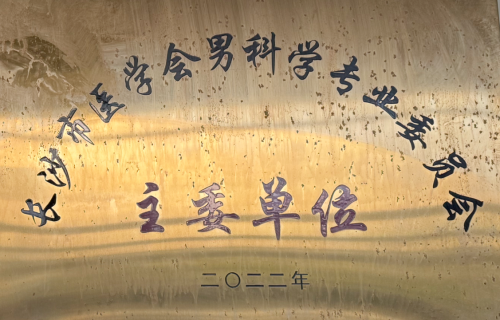 长沙市医学会男科学专业委员会
主委单位
二〇二二年